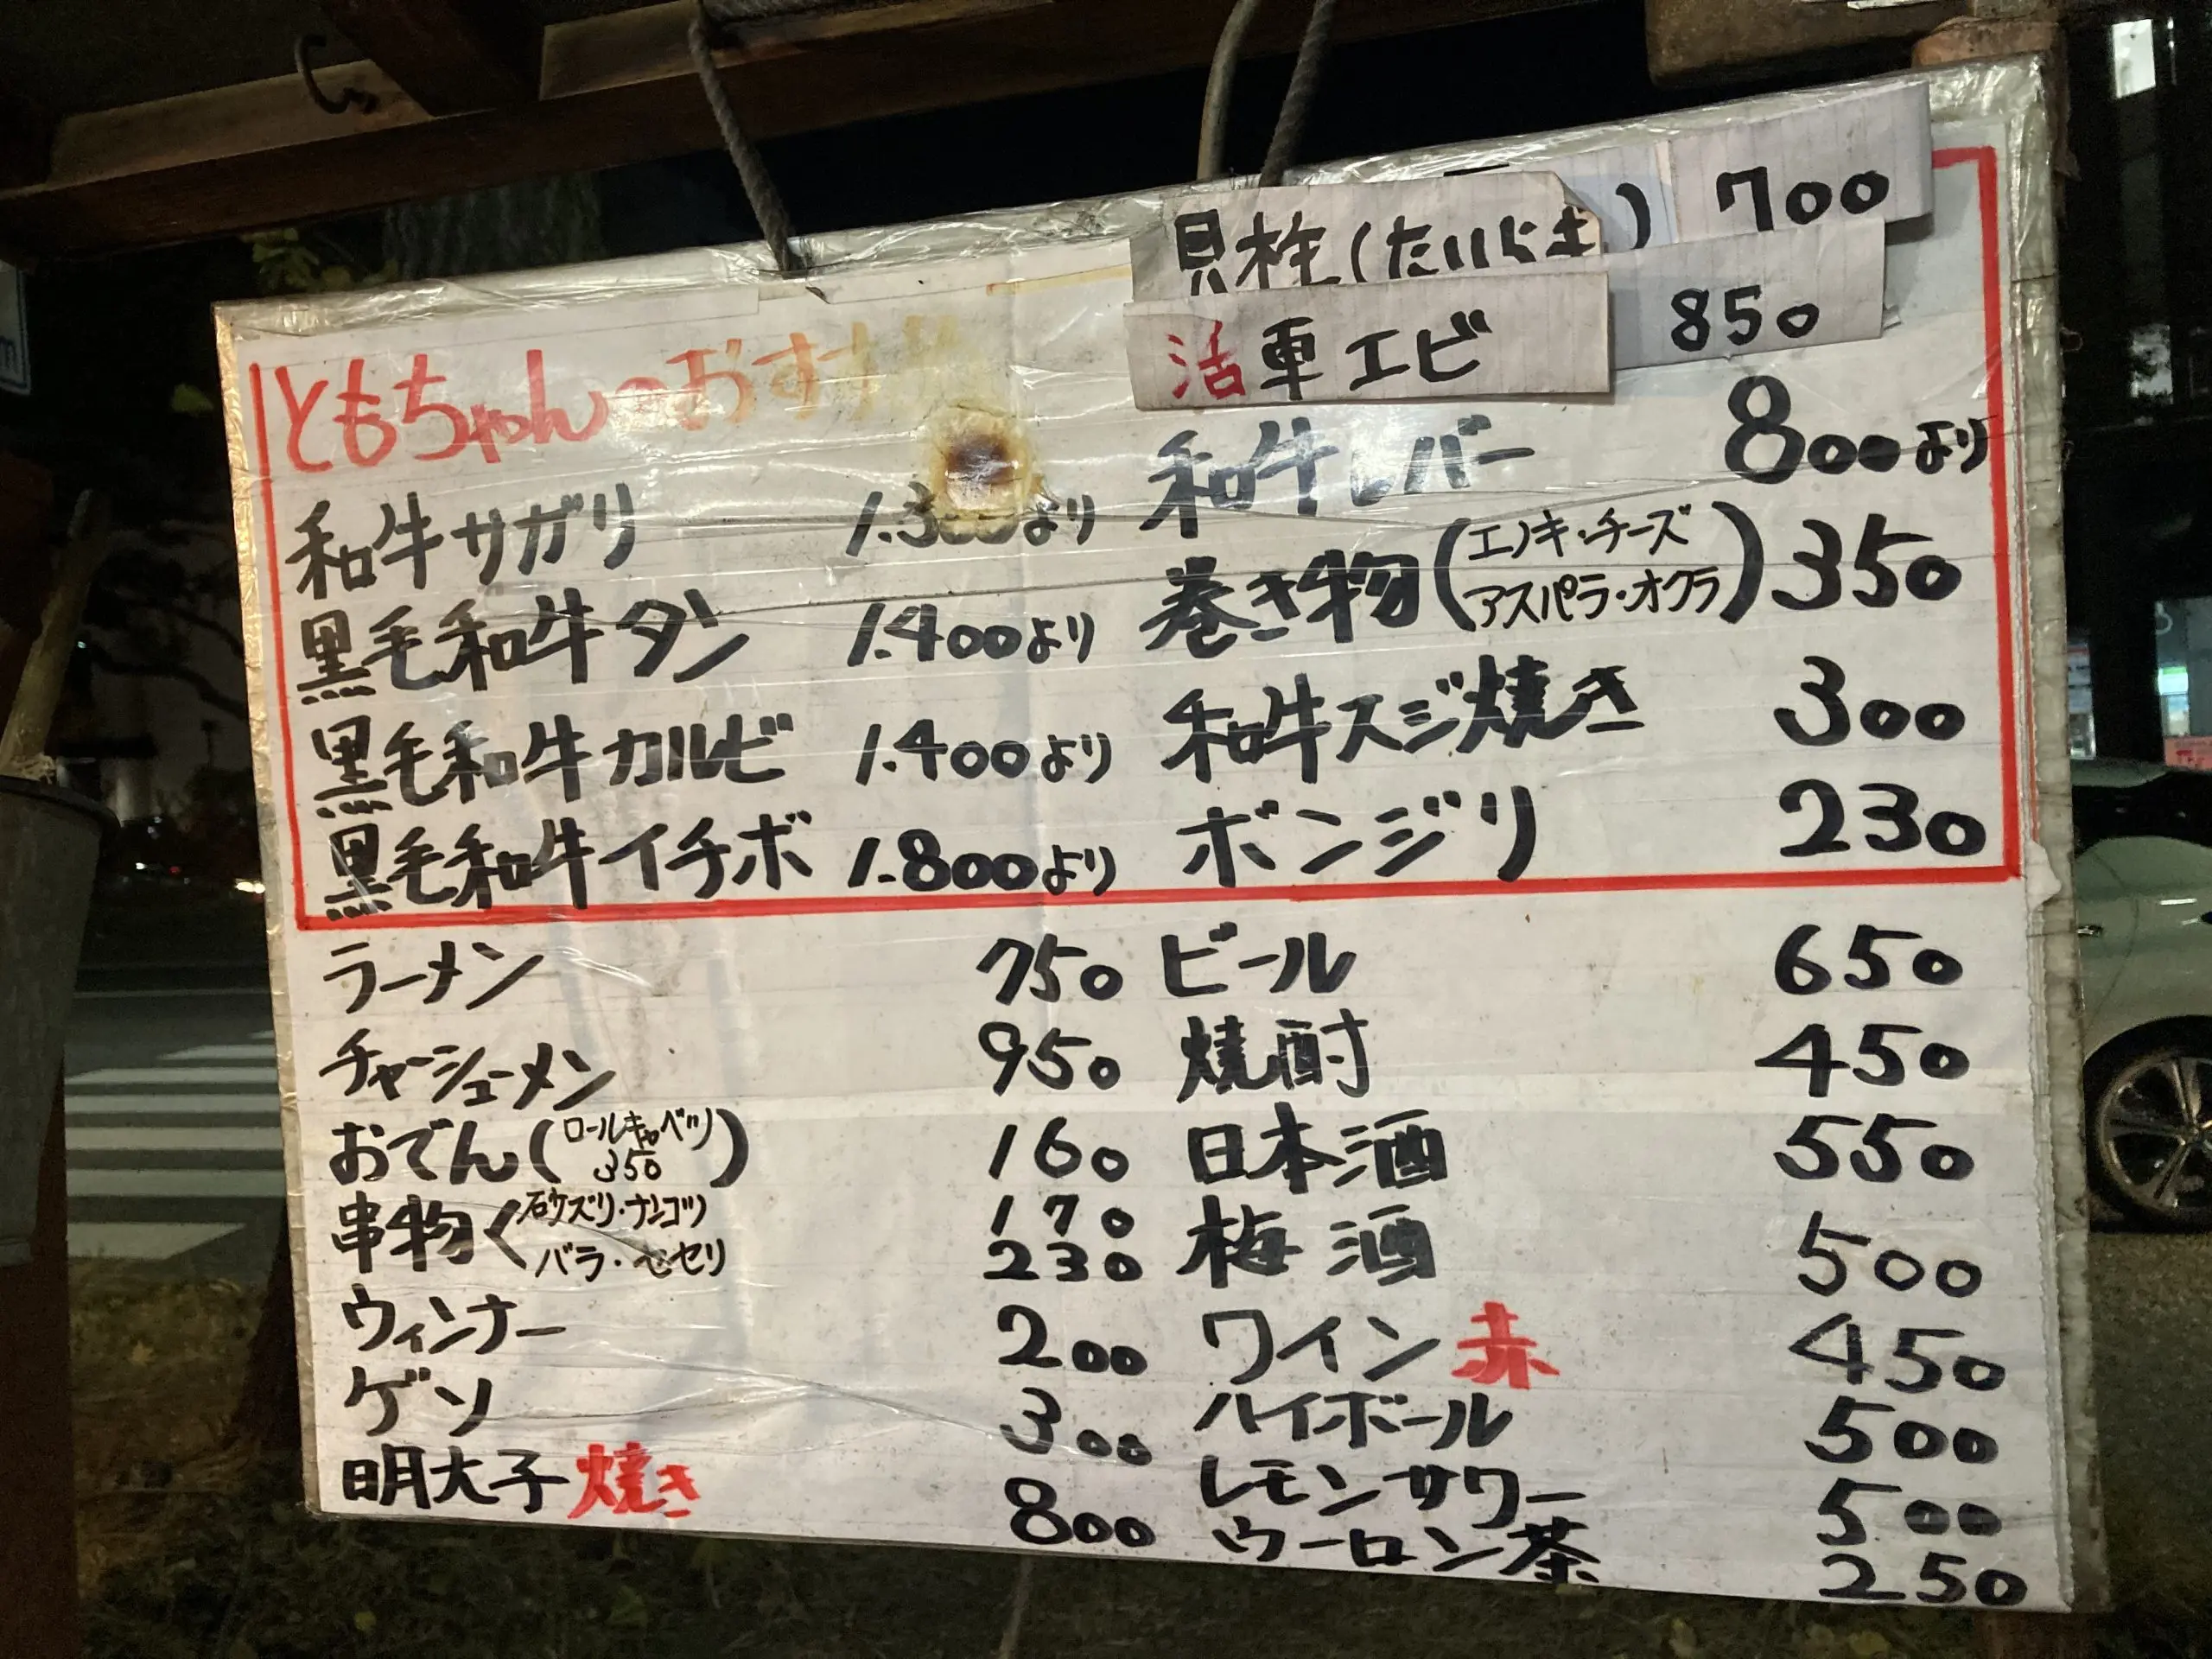 ともちゃんのおすす
和牛サガリ 1.300より
黒毛和牛タン 1.400より
黒毛和牛カルビ 1.400より
黒毛和牛イチボ 1.800より
貝柱(たいらぎ) 700
活車エビ 850
和牛レバー 800より
巻き物(エノキ・チーズ
アスパラ・オクラ) 350
和牛スジ焼き 300
ボンジリ 230
ラーメン 750
チャーシューメン 950
おでん(ロールキャベツ
350) 160
串物く砂ズリ・ナンコツ 170
バラ・セセリ 230
ウィンナー 200
ゲソ 300
明太子焼き 800
ビール 650
焼酎 450
日本酒 550
梅酒 500
ワイン赤 450
ハイボール 500
レモンサワー 500
ウーロン茶 250